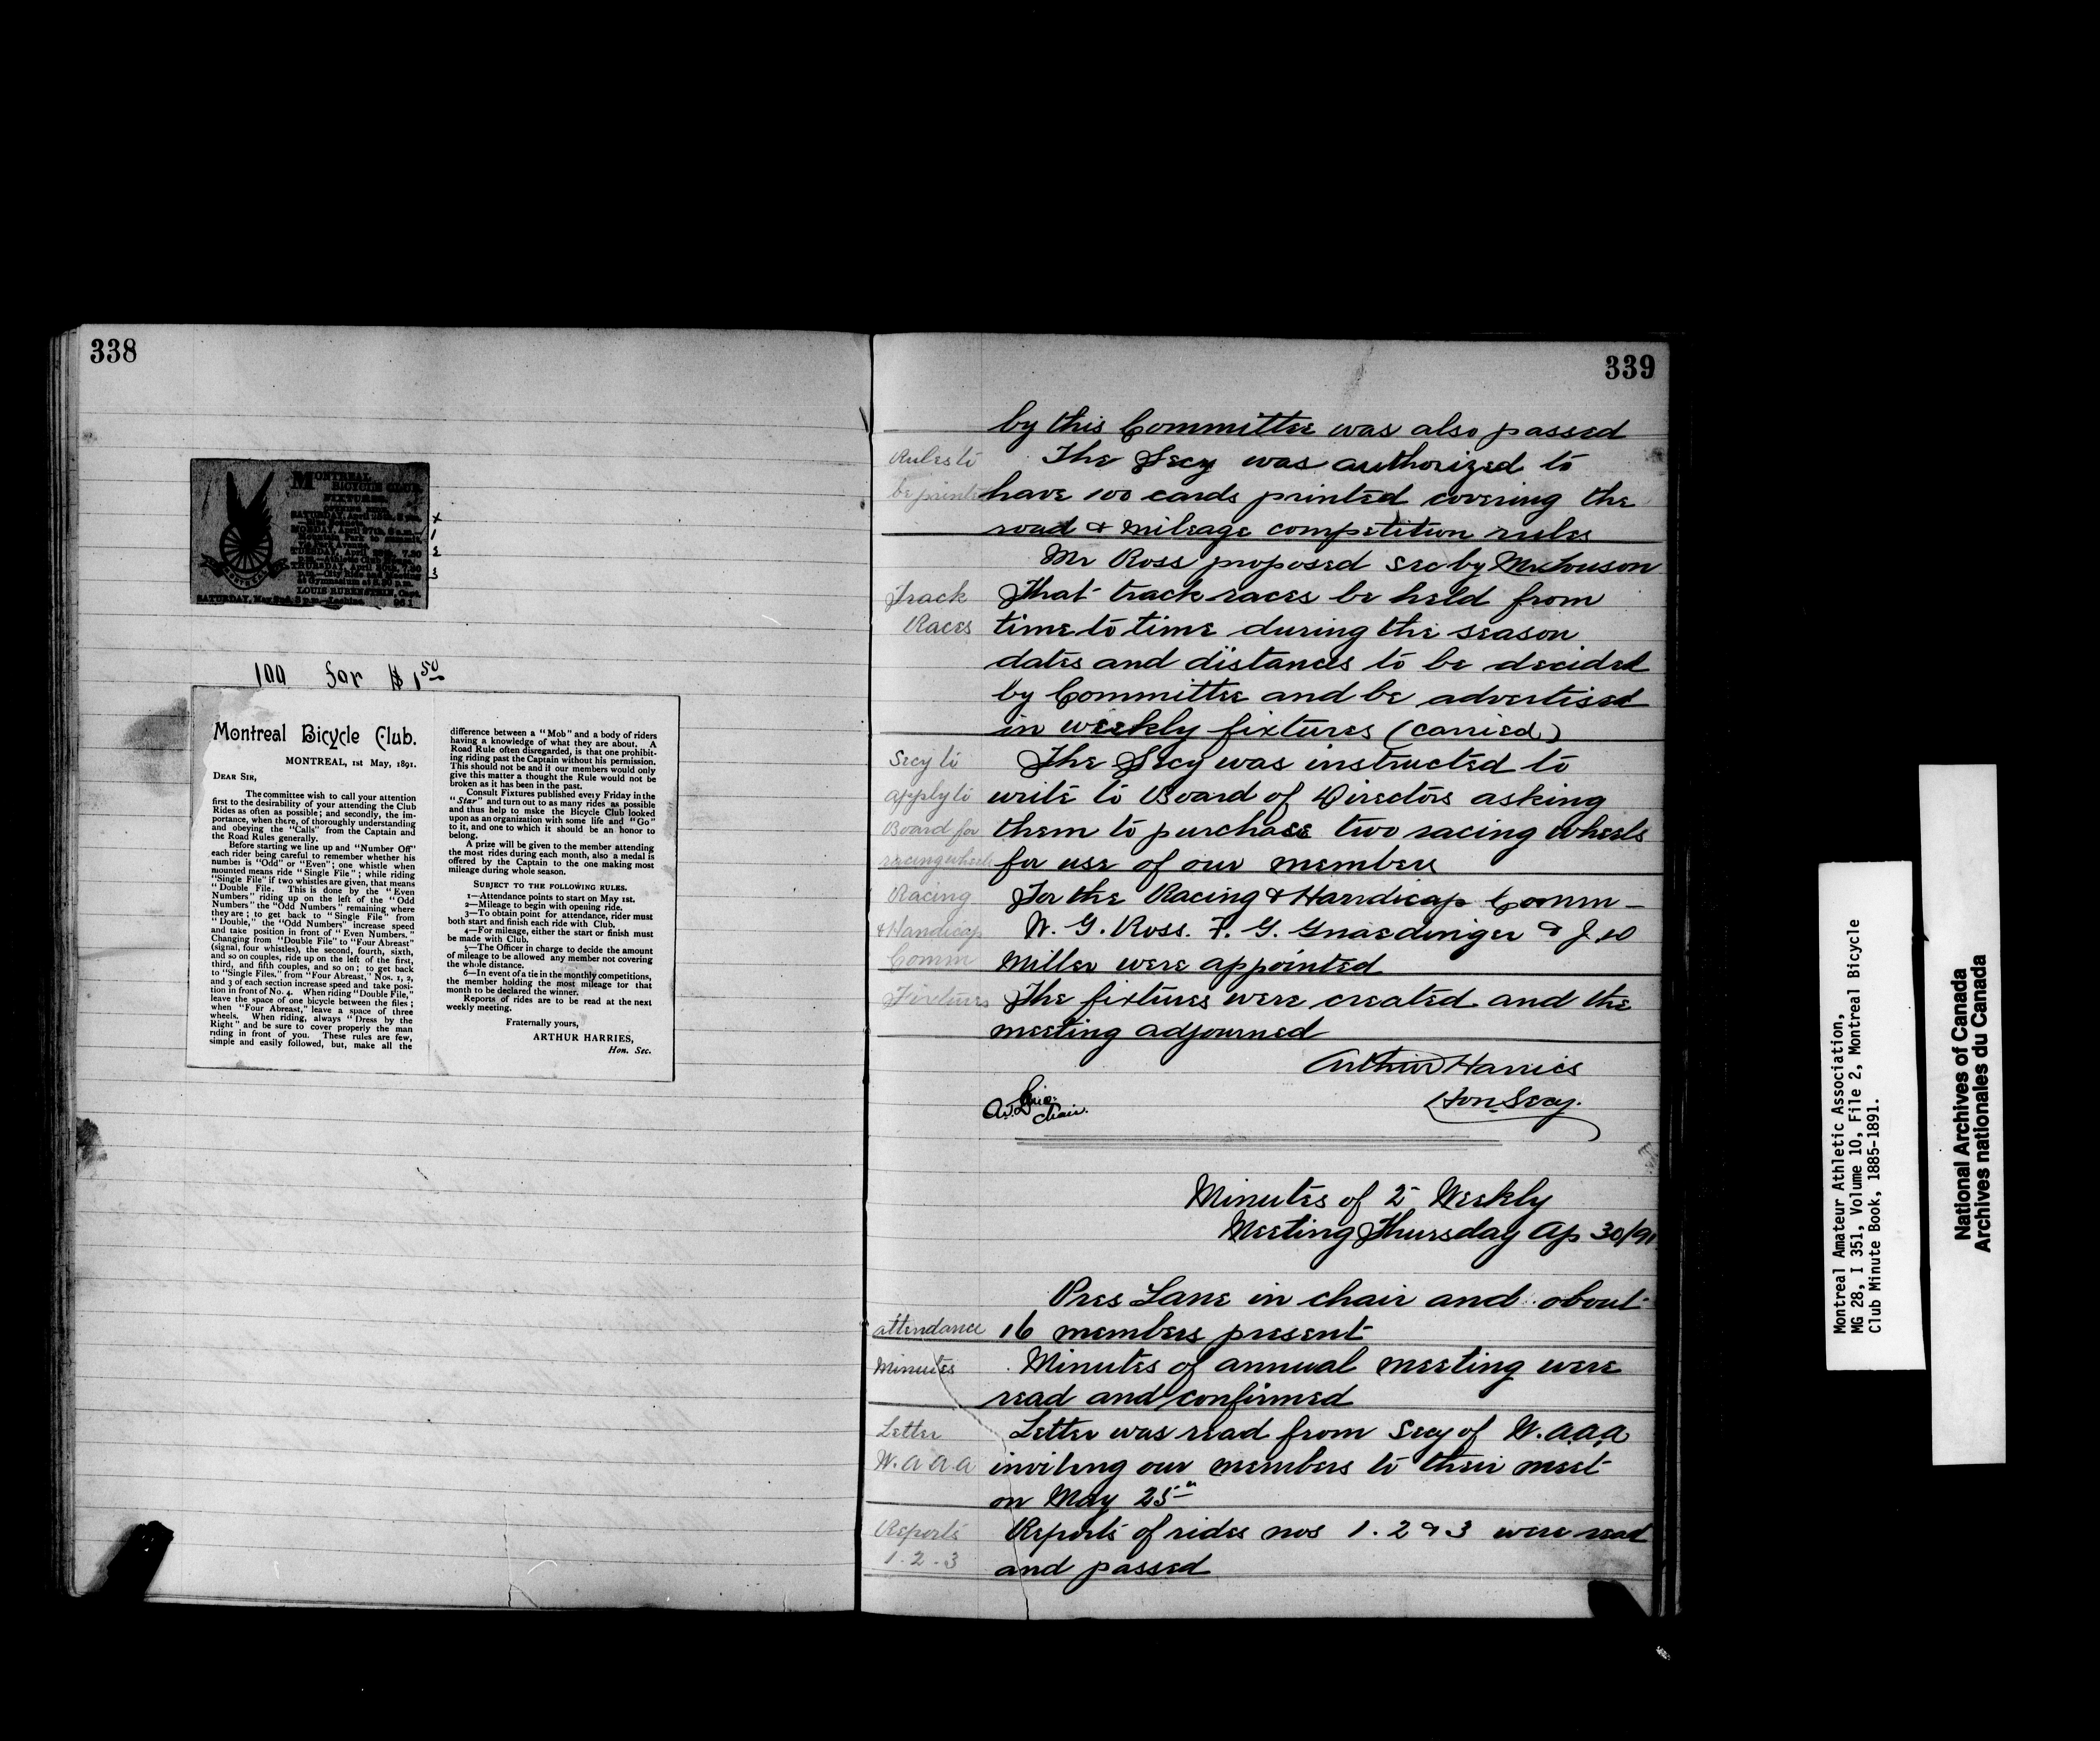 338
MONTREAL
BICYCLE CLUB.
FIXTURES.
SATURDAY, April 25th, 3 p.m.
MONDAY, April 27th, 6 a.m.
Mountain Park
Park Avenue.
TUESDAY, April 28th, 7.30
THURSDAY, April 30th, 7.30
p.m.—City Ride and Meeting
at Gymnasium at 8.30 p.m.
LOUIS RUBENSTEIN, Capt.
SATURDAY, May 2nd, 3 p.m.—Lachine. 96 1
x
1
2
3
100 for $1.50
Montreal Bicycle Club.
MONTREAL, 1st May, 1891.
DEAR SIR,
The committee wish to call your attention
first to the desirability of your attending the Club
Rides as often as possible; and secondly, the im-
portance, when there, of thoroughly understanding
and obeying the "Calls" from the Captain and
the Road Rules generally.
Before starting we line up and "Number Off"
each rider being careful to remember whether his
number is "Odd" or "Even"; one whistle when
mounted means ride "Single File"; while riding
"Single File" if two whistles are given, that means
"Double File. This is done by the "Even
Numbers" riding up on the left of the "Odd
Numbers" the "Odd Numbers" remaining where
they are; to get back to "Single File" from
"Double," the "Odd Numbers" increase speed
and take position in front of "Even Numbers."
Changing from "Double File" to "Four Abreast"
(signal, four whistles), the second, fourth, sixth,
and so on couples, ride up on the left of the first,
third, and fifth couples, and so on; to get back
to "Single Files," from "Four Abreast," Nos. 1, 2,
and 3 of each section increase speed and take posi-
tion in front of No. 4. When riding "Double File,"
leave the space of one bicycle between the files;
when "Four Abreast," leave a space of three
wheels. When riding, always "Dress by the
Right" and be sure to cover properly the man
riding in front of you. These rules are few,
simple and easily followed, but, make all the
difference between a "Mob" and a body of riders
having a knowledge of what they are about. A
Road Rule often disregarded, is that one prohibit-
ing riding past the Captain without his permission.
This should not be and if our members would only
give this matter a thought the Rule would not be
broken as it has been in the past.
Consult Fixtures published every Friday in the
"Star" and turn out to as many rides as possible
and thus help to make the Bicycle Club looked
upon as an organization with some life and "Go"
to it, and one to which it should be an honor to
belong.
A prize will be given to the member attending
the most rides during each month, also a medal is
offered by the Captain to the one making most
mileage during whole season.
SUBJECT TO THE FOLLOWING RULES.
1—Attendance points to start on May 1st.
2—Mileage to begin with opening ride.
3—To obtain point for attendance, rider must
both start and finish each ride with Club.
4—For mileage, either the start or finish must
be made with Club.
5—The Officer in charge to decide the amount
of mileage to be allowed any member not covering
the whole distance.
6—In event of a tie in the monthly competitions,
the member holding the most mileage for that
month to be declared the winner.
Reports of rides are to be read at the next
weekly meeting.
Fraternally yours,
ARTHUR HARRIES,
Hon. Sec.
339
by this Committee was also passed
Rules to The Secy was authorized to
be printed have 100 cards printed covering the
road & mileage competition rules
Mr Ross proposed sec by Mr Louson
Track That track races be held from
Races time to time during the season
dates and distances to be decided
by Committee and be advertised
in weekly fixtures (carried)
Secy to The Secy was instructed to
apply to write to Board of Directors asking
Board for them to purchase two racing wheels
racing wheels for use of our members
Racing For the Racing & Handicap Comm—
& Handicap W. G. Ross. F. G. Gnaedinger & J W
Comm Miller were appointed
Fixtures The fixtures were created and the
meeting adjourned
Arthur Harries
Hon. Secy.
chair.
Minutes of 2 Weekly
Meeting Thursday Ap 30/91
Pres Lane in chair and about
attendance 16 members present
Minutes Minutes of annual meeting were
read and confirmed
Letter Letter was read from Secy of W.A.A.A
W.A A A inviting our members to their meet
on May 25th
Reports Reports of rides nos 1. 2 & 3 were read
1. 2 - 3 and passed
Montreal Amateur Athletic Association,
MG 28, I 351, Volume 10, File 2, Montreal Bicycle
Club Minute Book, 1885-1891.
National Archives of Canada
Archives nationales du Canada